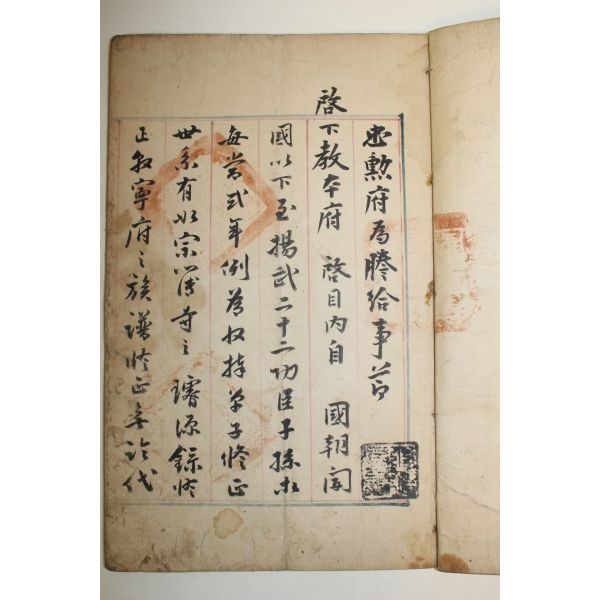 忠勳府爲謄給事節
啓下敎本府 啓目內自 國朝開
國以下至揚武二十二功臣子孫
每當式年例爲收捧單子修正
世系有如宗簿寺之璿源錄修
正敦寧府之族譜修正無論代